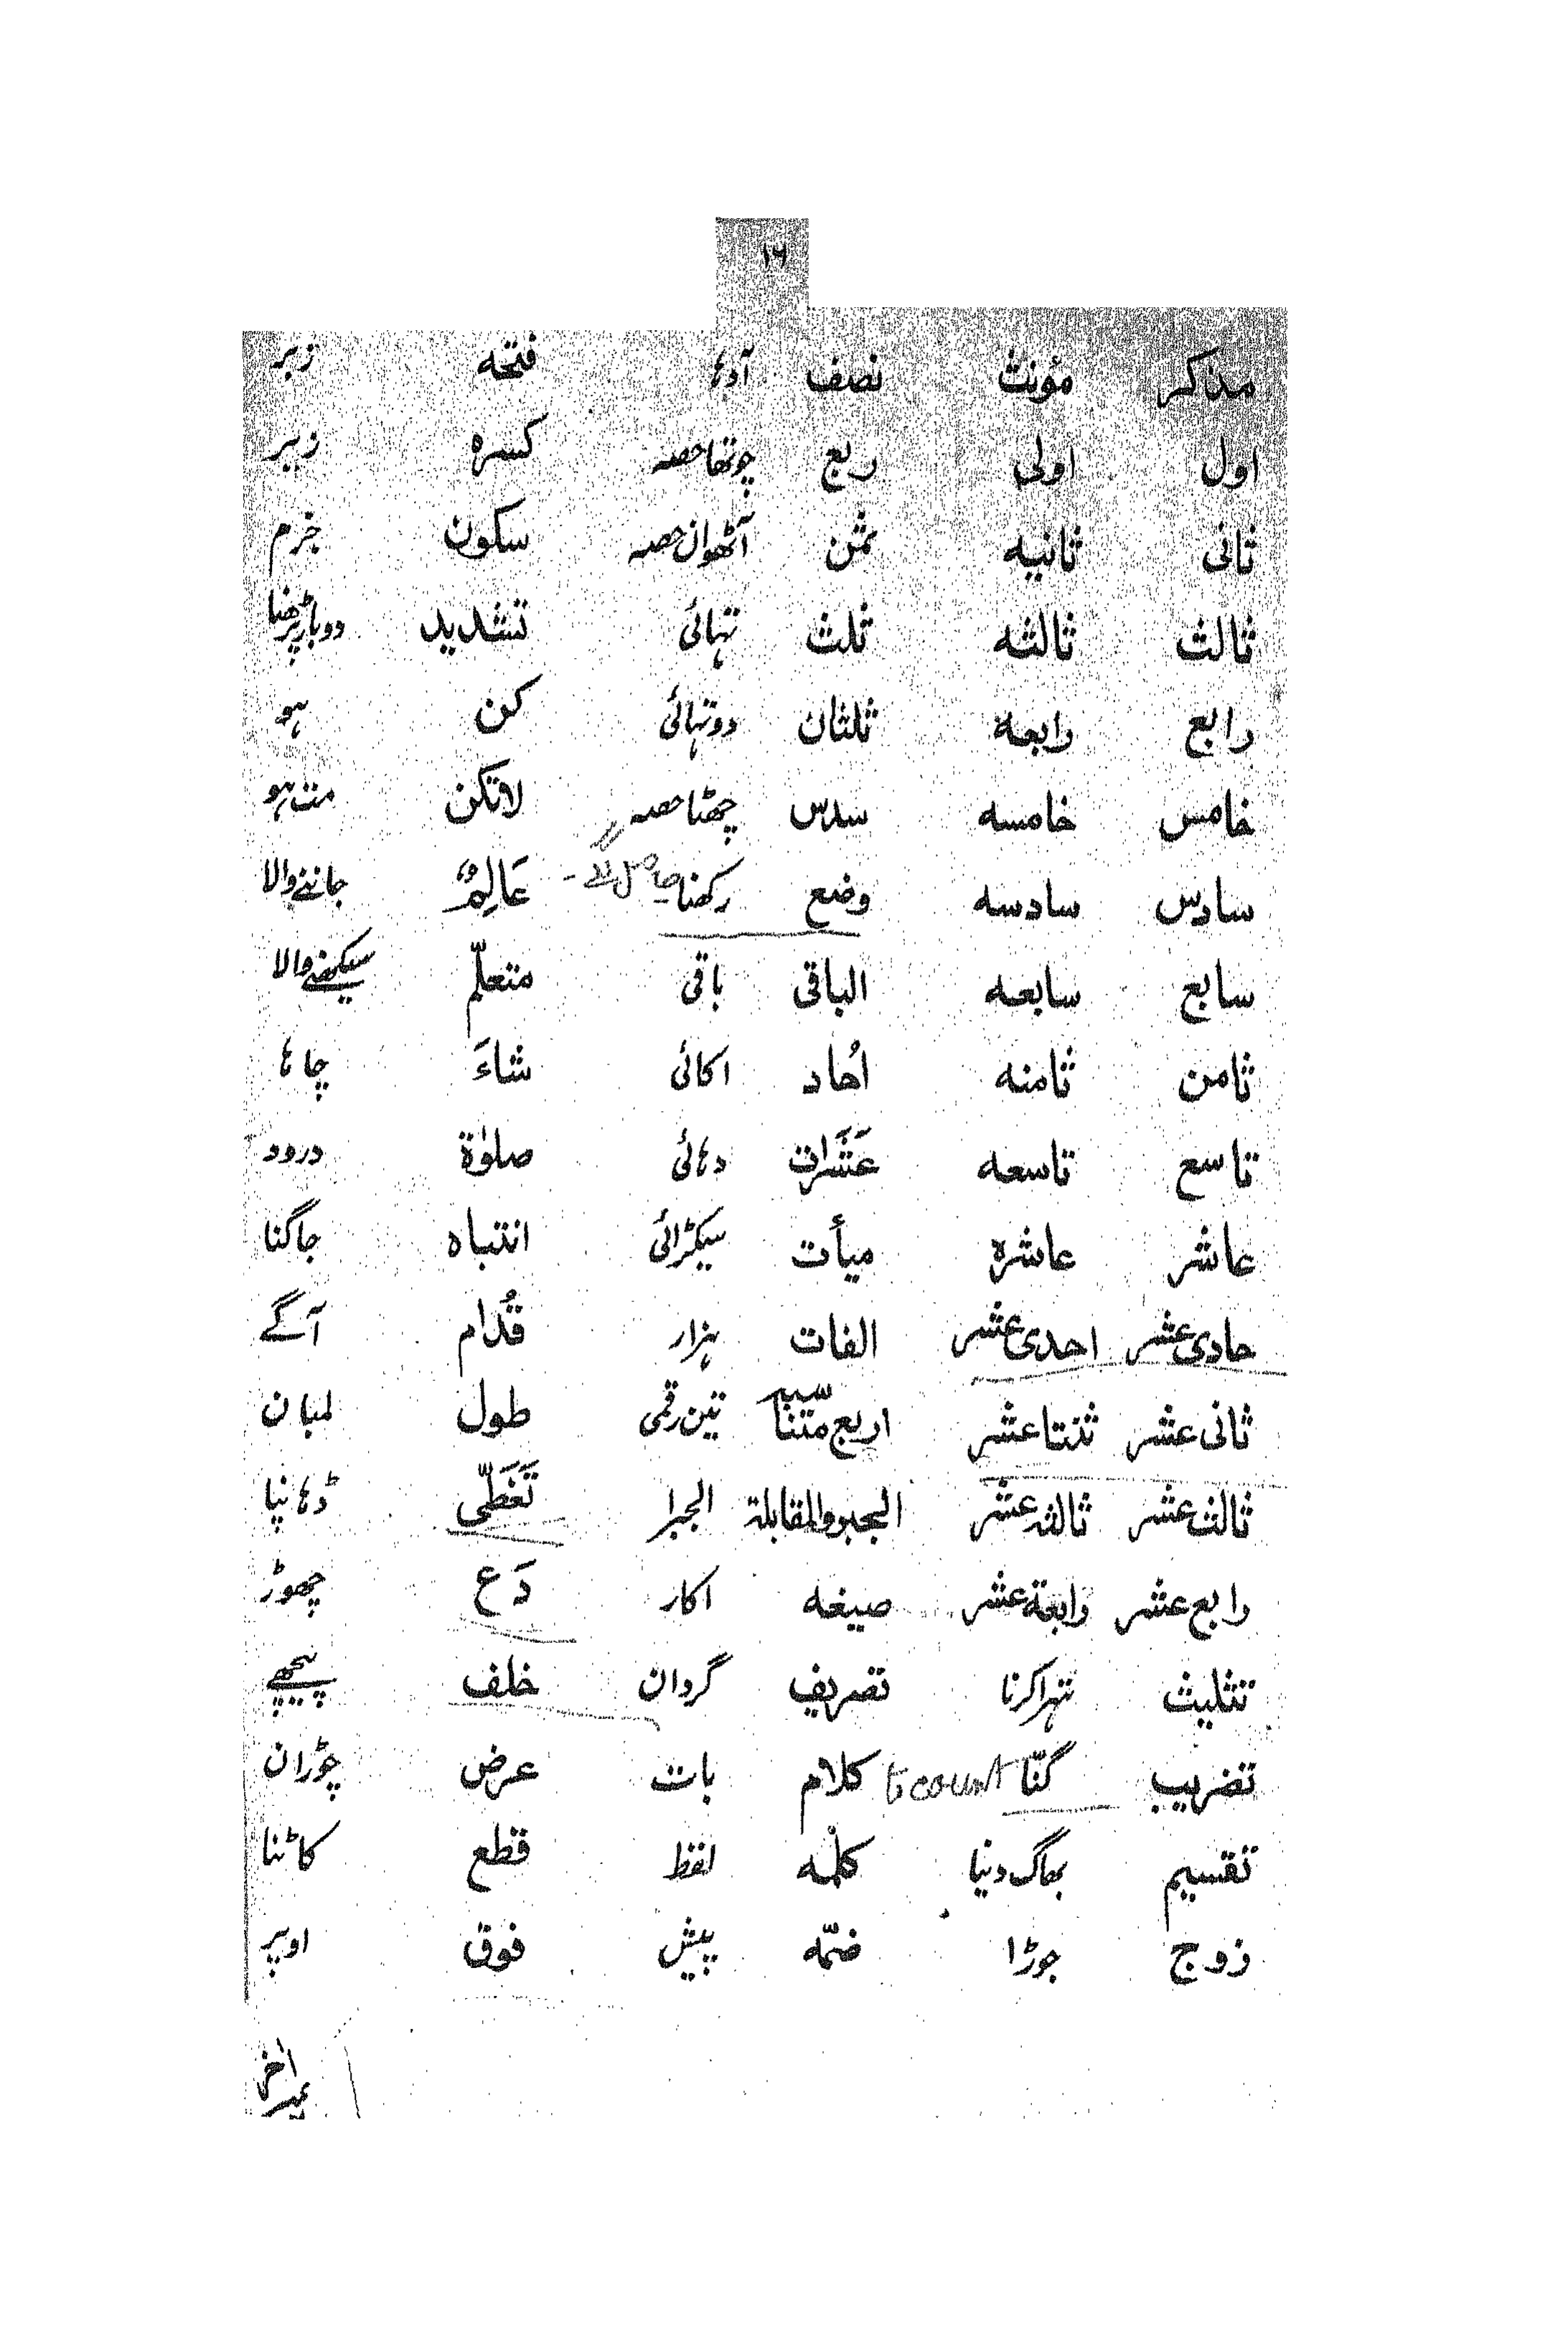 ۱۶
مذکر مؤنث نصف آدہا فتحہ زبر
اول اولی ربع چوتھا حصہ کسرہ زیر
ثانی ثانیہ ثمن آٹھواں حصہ سکون جزم
ثالث ثالثہ ثلث تہائی تشدید دوبار پڑھنا
رابع رابعہ ثلثان دو تہائی کن ہو
خامس خامسہ سدس چھٹا حصہ لاتکن مت ہو
سادس سادسہ وضع رکھنا عَالِمٌ جاننے والا
سابع سابعہ الباقی باقی متعلّم سیکھنے والا
ثامن ثامنہ اُحاد اکائی شاءَ چاہا
تاسع تاسعہ عَشَرات دہائی صلوٰة درود
عاشر عاشرة میأت سیکڑائی انتباہ جاگنا
حادی عشر احدی عشر الفات ہزار قُدّام آگے
ثانی عشر ثنتا عشر اربع متناسبہ تین رقمی طول لمبان
ثالث عشر ثالثہ عشر الجبر والمقابلة الجبرا تَغَطّی ڈہانپا
رابع عشر رابعة عشر صیغہ اکار دَع چھوڑ
تثلیث تہرا کرنا تصریف گردان خلف پیچھے
تضریب گنّا to count کلام بات عرض چوڑان
تقسیم بھاگ دنیا کلمہ لفظ قطع کاٹنا
زوج جوڑا ضمّہ پیش فوق اوپر